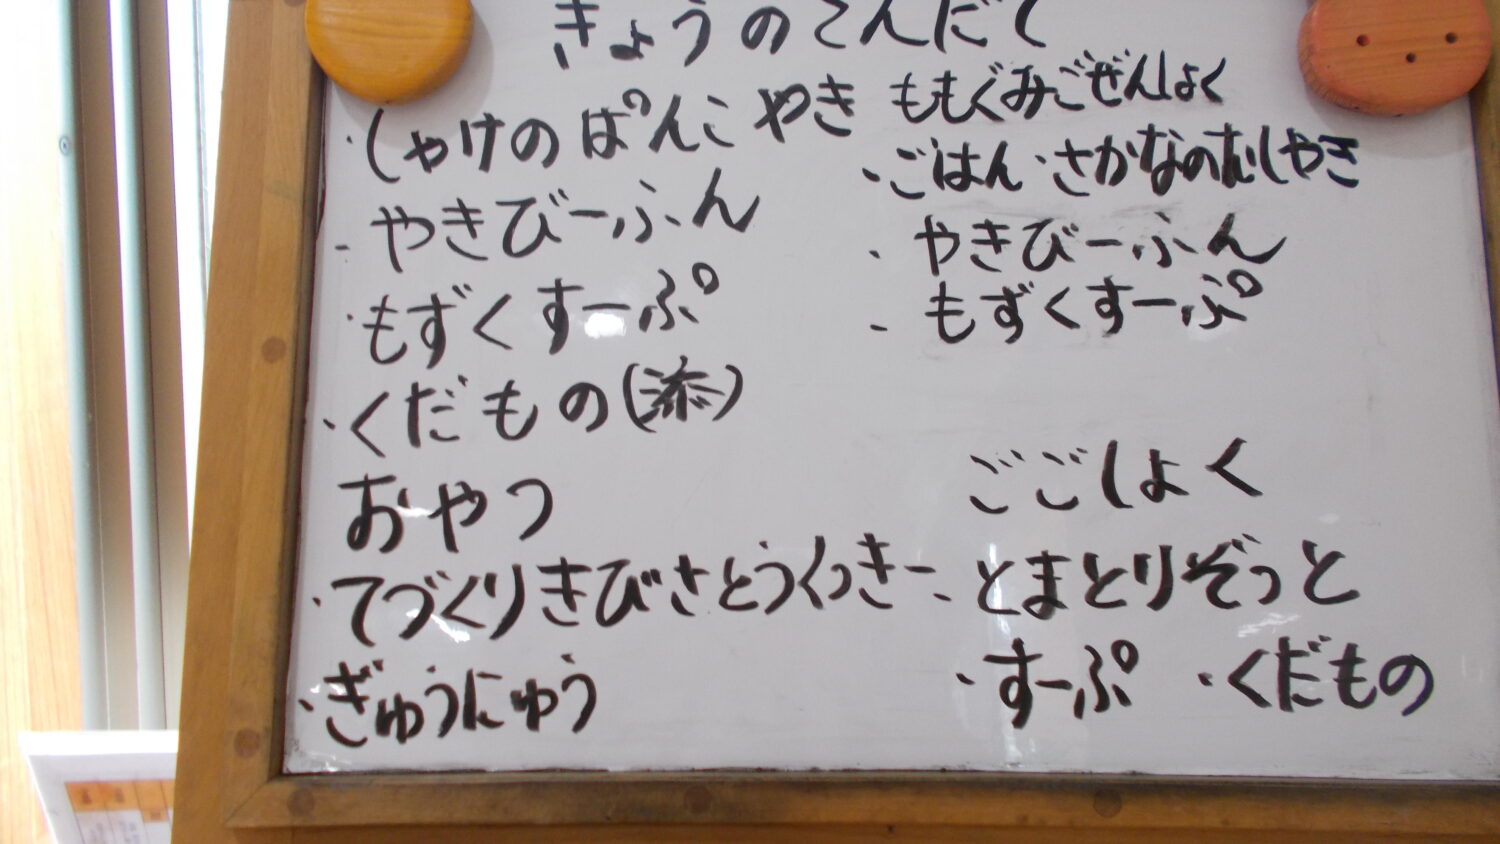 きょうのこんだて
・しゃけのぱんこやき
・やきびーふん
・もずくすーぷ
・くだもの(添)
おやつ
・てづくりきびさとうくっきー
・ぎゅうにゅう
ももぐみごぜんしょく
・ごはん・さかなのむしやき
・やきびーふん
・もずくすーぷ
ごごしょく
・とまとりぞっと
・すーぷ ・くだもの